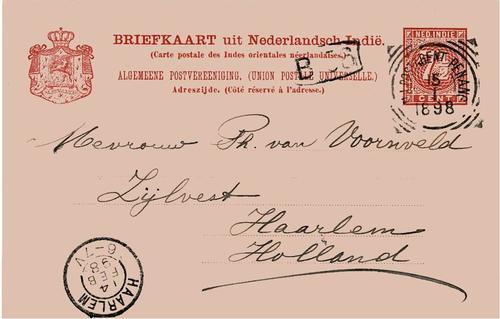 BRIEFKAART uit Nederlandsch Indië.
(Carte postale des Indes orientales néerlandaises.)
ALGEMEENE POSTVEREENIGING. (UNION POSTALE UNIVERSELLE.)
Adreszijde. (Côté réservé à l'adresse.)
NED. INDIE
CENT
B S
1898
Mevrouw Ph. van Voornveld
Zijlvest
Haarlem
Holland
HAARLEM
4 FEB
98
6-7V